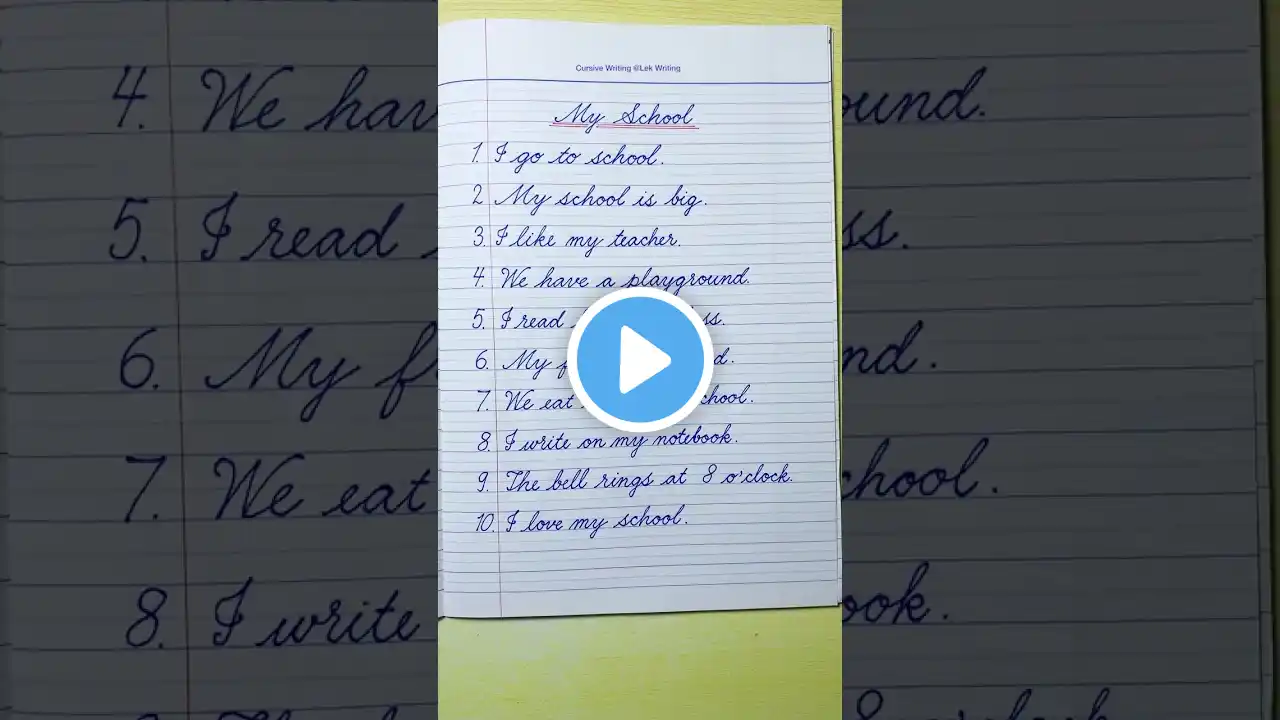 Cursive Writing @Lek Writing
My School
1. I go to school.
2 My school is big.
3. I like my teacher.
4. We have a playground.
5. I read
6. My
7. We eat school.
8. I write on my notebook.
9. The bell rings at 8 o'clock.
10. I love my school.
4. We
5. I read
6. My
7. We eat
8. I write